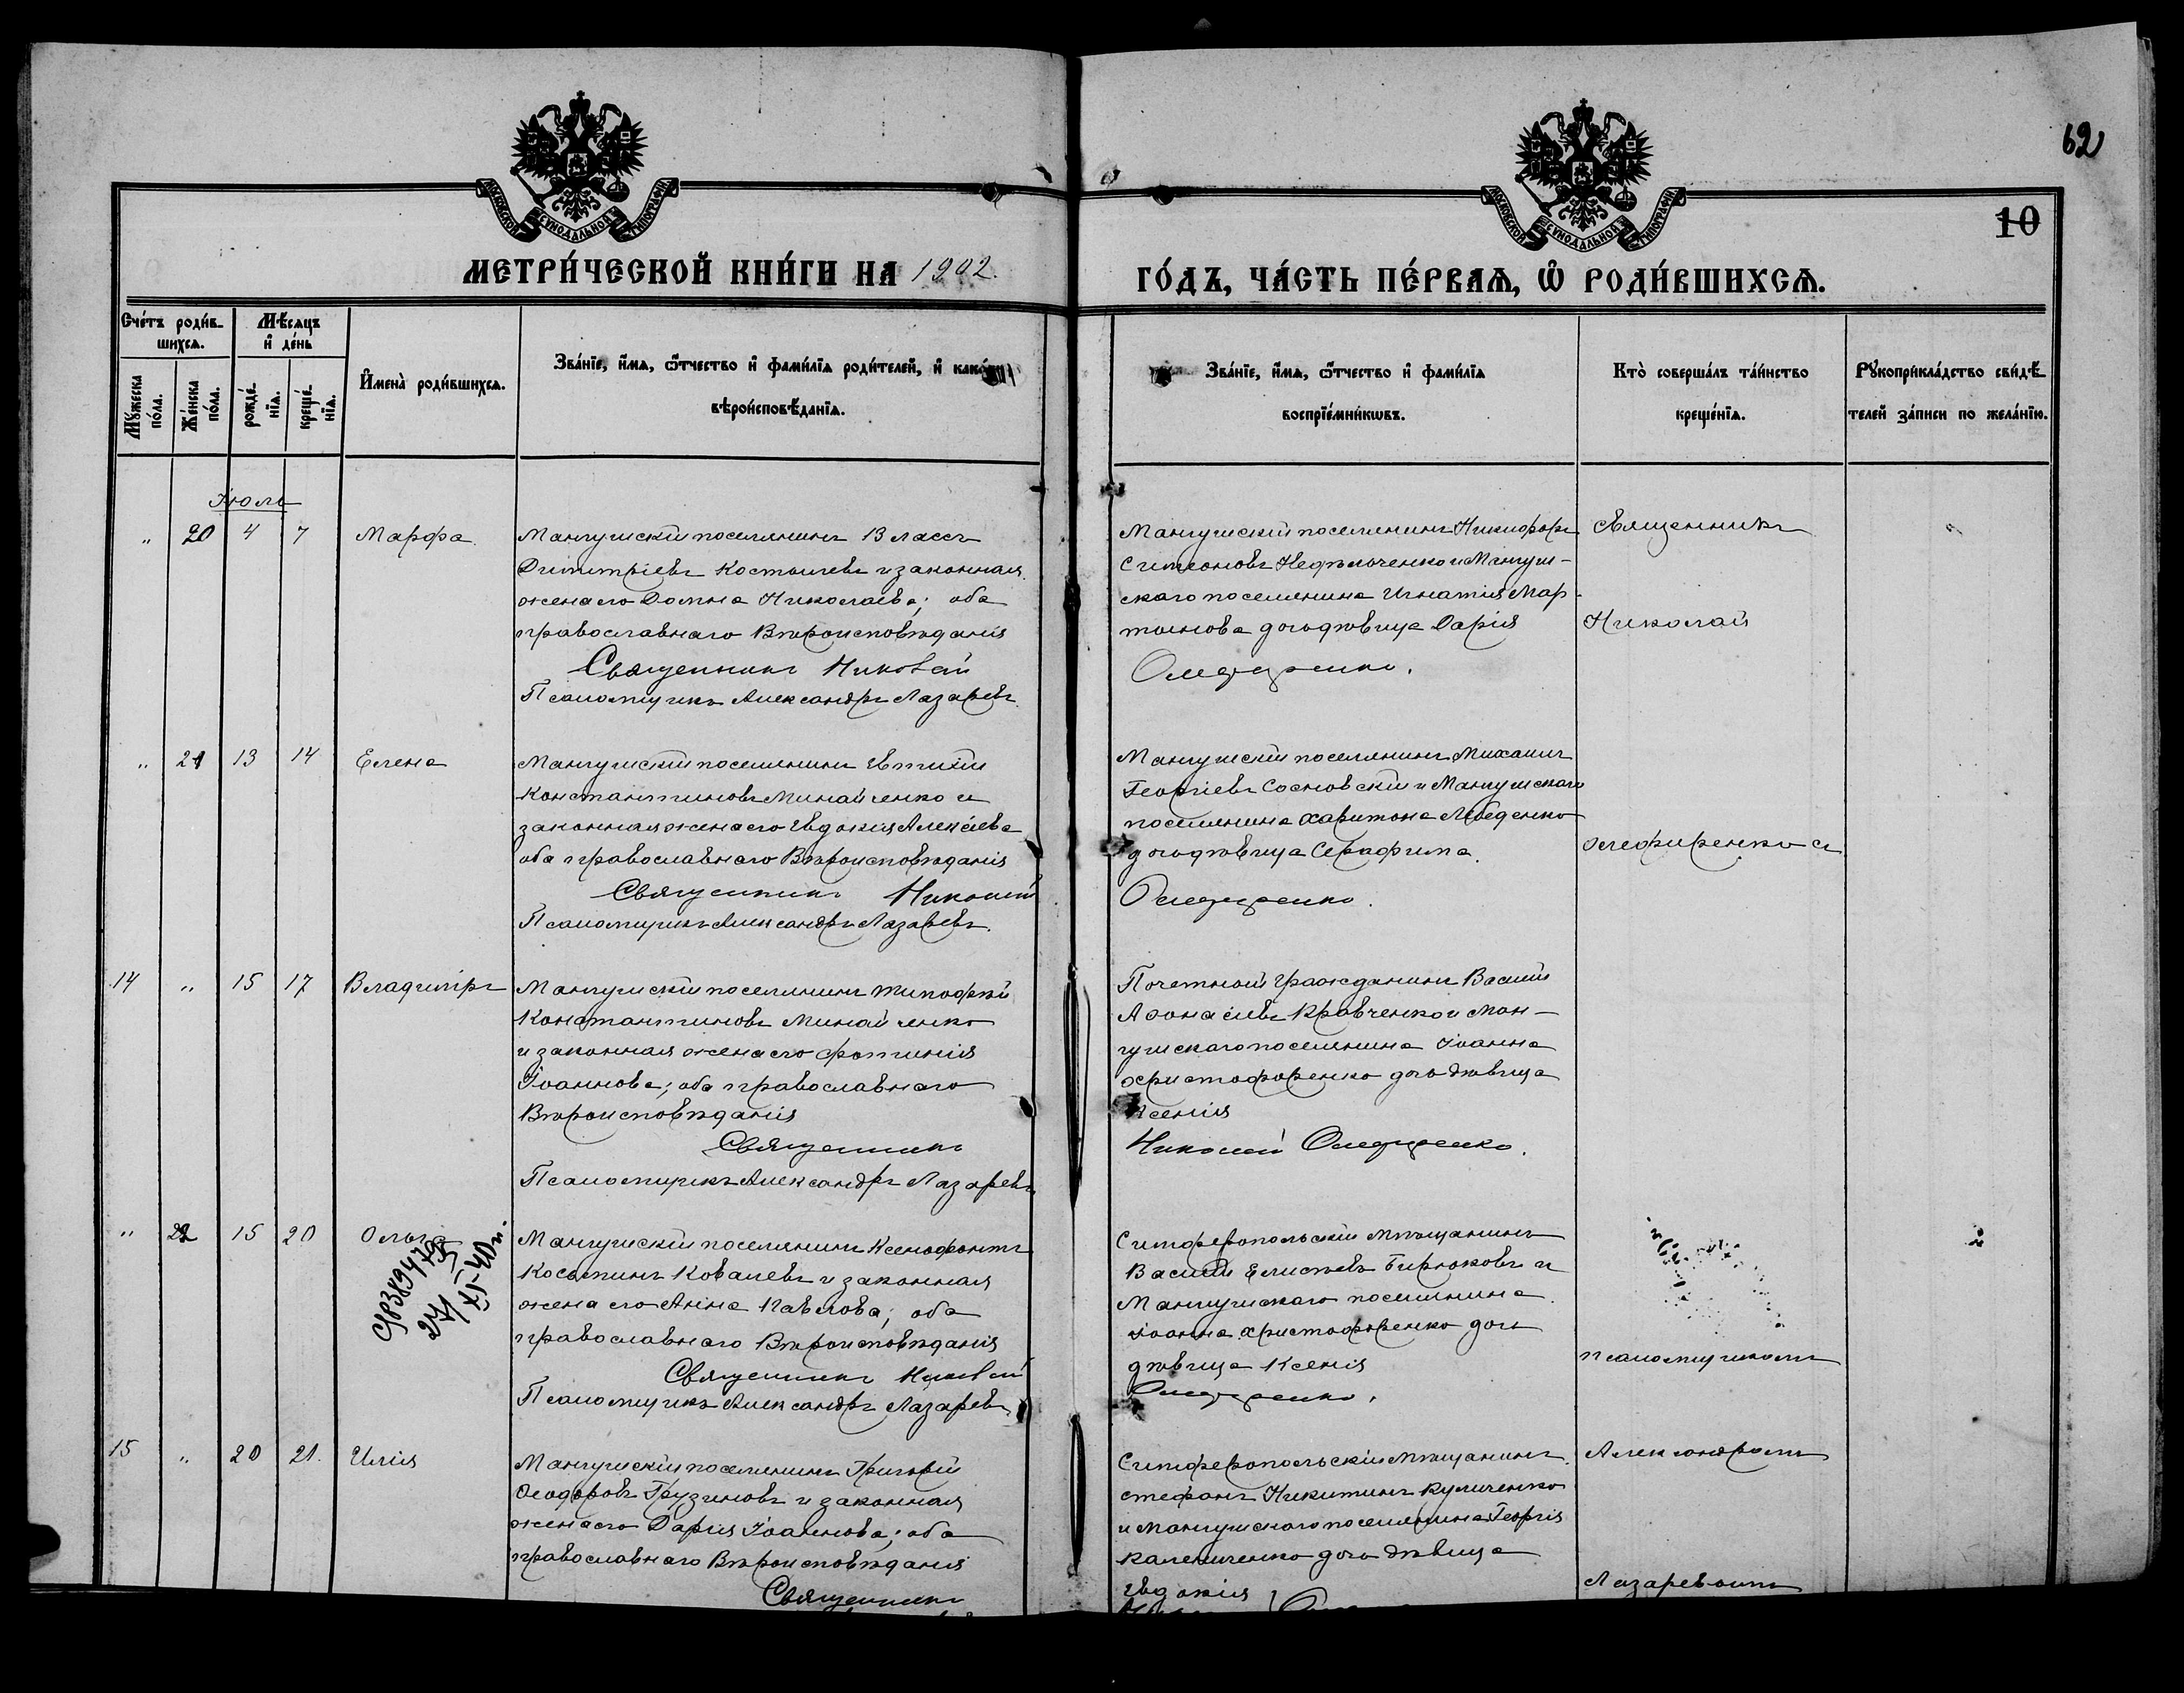 62
10
МОСКОВСКОЙ СѴНОДАЛЬНОЙ ТИПОГРАФІИ
МОСКОВСКОЙ СѴНОДАЛЬНОЙ ТИПОГРАФІИ
МЕТРИ́ЧЕСКОЙ КНИ́ГИ НА 1902.
ГО́ДЪ, ЧА́СТЬ ПЕ́РВАѦ, Ѽ РОДИ́ВШИХСѦ.
Сче́тъ роди́в-
шихсѧ.
Мѣ́сѧцъ
и҆ де́нь
Мꙋ́жеска
по́ла.
Же́нска
по́ла.
рожде́-
нїѧ.
креще́-
нїѧ.
И҆мена̀ роди́вшихсѧ.
Зва́нїе, и҆́мѧ, ѻ҆́тчество и҆ фами́лїѧ роди́телей, и҆
вѣроисповѣ́данїѧ.
Зва́нїе, и҆́мѧ, ѻ҆́тчество и҆ фами́лїѧ
воспрїе́мникѡвъ.
Кто̀ соверша́лъ та́инство
креще́нїѧ.
Рꙋкоприкла́дство свидѣ́-
телей за́писи по жела́нїю.
Іюль
" 20 4 7 Марфа
Мангушскій поселянинъ Власъ
Димитріевъ Костылевъ и законная
жена его Домна Николаева; оба
православнаго Вѣроисповѣданія
Священникъ Николай
Псаломщикъ Александръ Лазаревъ.
Мангушскій поселянинъ Никифоръ
Симеоновъ и Мангуш-
скаго поселянина Игнатія Мар-
тынова дочь дѣвица Дарія
Олефиренко.
Священникъ
Николай
" 21 13 14 Елена
Мангушскій поселянинъ Евтихій
Константиновъ Минайченко и
законная жена его Евдокія Алексіева
оба православнаго Вѣроисповѣданія
Священникъ Николай
Псаломщикъ Александръ Лазаревъ.
Мангушскій поселянинъ Михаилъ
Георгіевъ Сосновскій и Мангушскаго
поселянина Харитона Лебеденко
дочь дѣвица Серафима.
Олефиренко.
Олефиренко съ
14 " 15 17 Владиміръ
Мангушскій поселянинъ Тимофѣй
Константиновъ Минайченко
и законная жена его Фотинія
Іоаннова; оба православнаго
Вѣроисповѣданія
Священникъ
Псаломщикъ Александръ Лазаревъ
Почетный Гражданинъ Василій
Аѳонасіевъ Кравченко и Ман-
гушскаго поселянина Іоанна
Христофоренко дочь дѣвица
Ксенія
Николай Олефиренко.
" 22 15 20 Ольга
27/
XI-40г.
Мангушскій поселянинъ Ксенофонтъ
Косьминъ Ковалевъ и законная
жена его Анна Павлова; оба
православнаго Вѣроисповѣданія
Священникъ Николай
Псаломщикъ Александръ Лазаревъ.
Симферопольскій мѣщанинъ
Василій Елисѣевъ Бирюковъ и
Мангушскаго поселянина
Іоанна Христофоренко дочь
дѣвица Ксенія
Олефиренко.
псаломщикомъ
15 " 20 21. Илія
Мангушскій поселянинъ Григорій
Ѳеодоровъ Грузиновъ и законная
жена его Дарія Іоаннова; оба
православнаго Вѣроисповѣданія
Священникъ
Симферопольскій мѣщанинъ
Стефанъ Никитинъ Куличенко
и Мангушскаго поселянина Георгія
Калениченко дочь дѣвица
Евдокія
Александромъ
Лазаревымъ